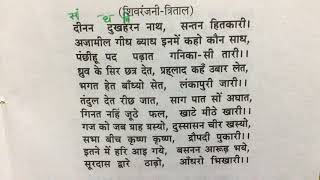 सं ध
(शिवरंजनी-त्रिताल)
दीनन दुखहरन नाथ, सन्तन हितकारी।
अजामील गीध ब्याध इनमें कहो कौन साध,
पंछीहू पद पढ़ात गनिका-सी तारी।।
ध्रुव के सिर छत्र देत, प्रहलाद कहँ उबार लेत,
भगत हेत बाँध्यो सेत, लंकापुरी जारी।।
तंदुल देत रीछ जात, साग पात सों अघात,
गिनत नहिं जूठे फल, खाटे मीठे खारी।।
गज को जब ग्राह ग्रस्यो, दुस्सासन चीर खस्यो,
सभा बीच कृष्ण कृष्ण, द्रौपदी पुकारी।।
इतने में हरि आइ गये, बसनन आरूढ़ भये,
सूरदास द्वारे ठाढ़ो, आँधरो भिखारी।।